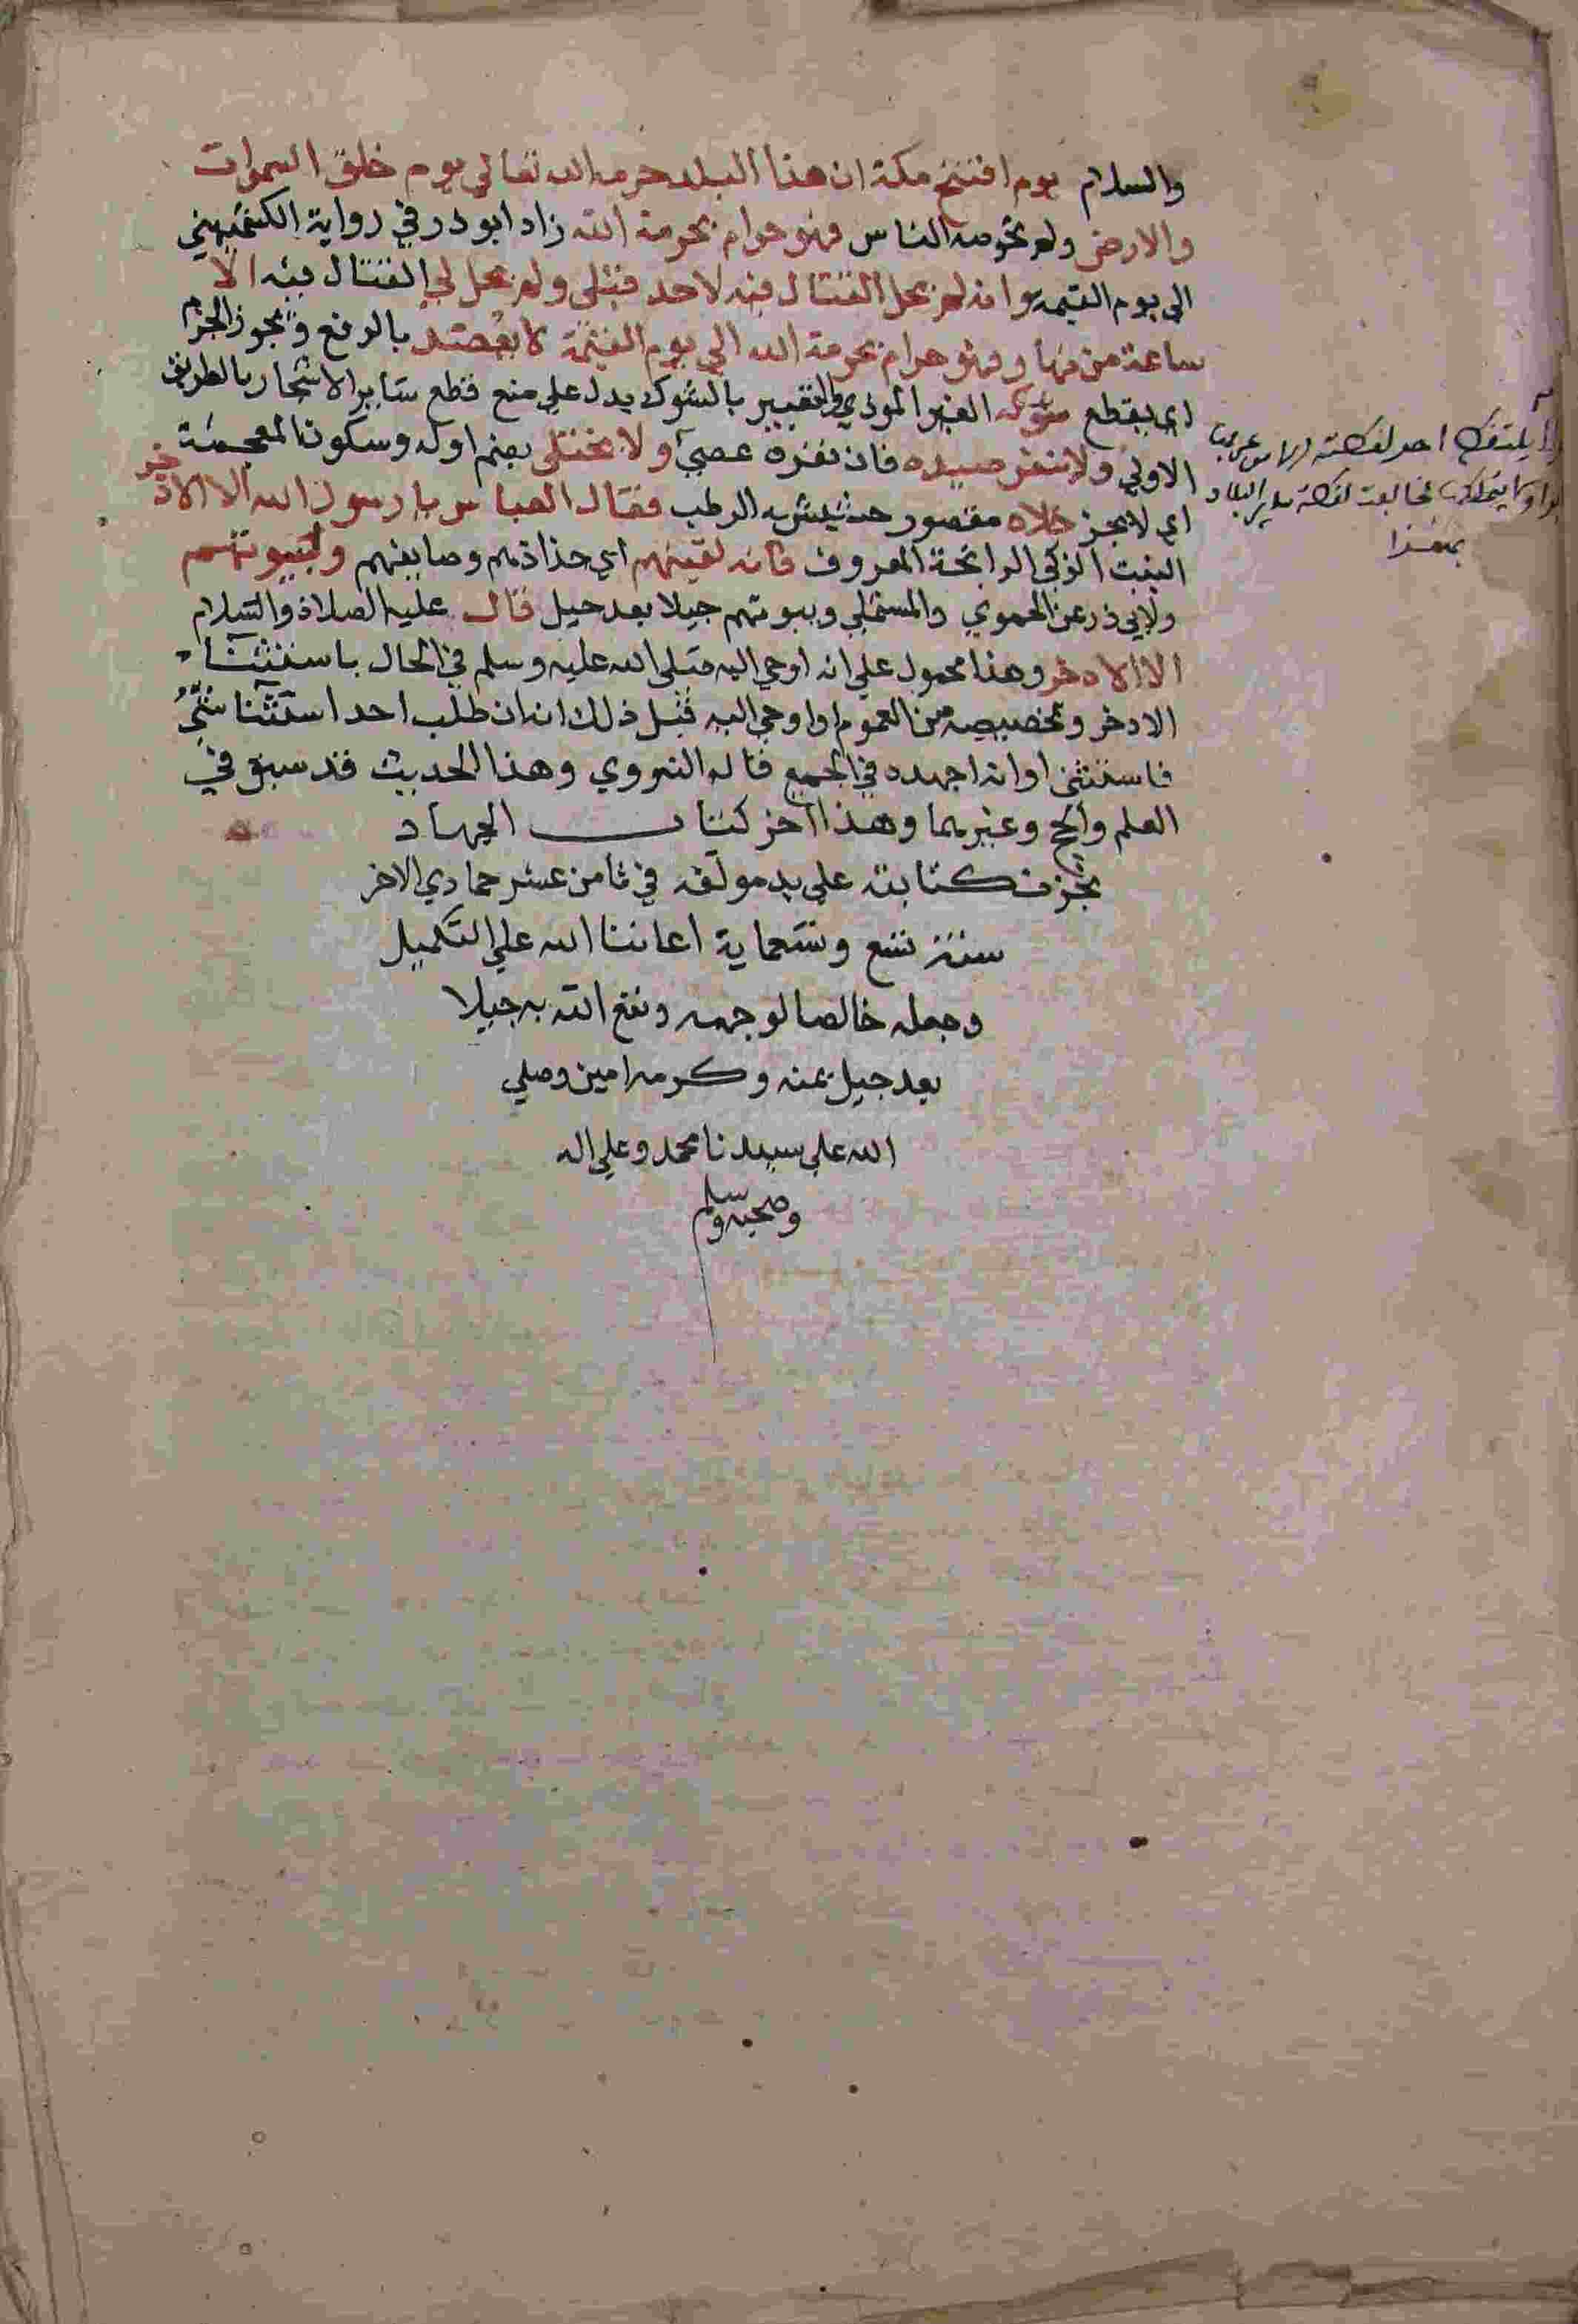 والسلام يوم افتتح مكة ان هذا البلد حرمه الله تعالي يوم خلق السموات
والارض ولم يحرمه الناس فهو حرام بحرمة الله زاد ابو ذر في رواية الكشميهني
الي يوم القيمة وانه لم يحل القتال فيه لاحد قبلي ولم يحل لي القتال فيه الا
ساعة من نهار فهو حرام بحرمة الله الي يوم القيمة لا يعضد بالرفع ويجوز الجزم
اي يقطع شوكه الغير الموذي والتعبير بالشوك يدل علي منع قطع سائر الاشجار بالطريق
الاولي ولا ينفر صيده فان نفره عصي ولا يختلي بضم اوله وسكون المعجمة
اي لا يجز خلاه مقصور حشيشه الرطب فقال العباس يا رسول الله الا الاذخر
النبت الزكي الرائحة المعروف فانه لقينهم اي حدادهم وصايغهم ولبيوتهم
ولابي ذر عن الحموي والمستملي وبيوتهم جيلا بعد جيل قال عليه الصلاة والسلام
الا الاذخر وهذا محمول علي انه اوحي اليه صلي الله عليه وسلم في الحال باستثناء
الاذخر وتخصيصه من العموم او اوحي اليه قبل ذلك انه ان طلب احد استثنا شي
فاستثني او انه اجتهد في الجميع قاله النووي وهذا الحديث قد سبق في
العلم والحج وغيرهما وهذا اخر كتاب الجهاد
نجزت كتابته علي يد مولفه في ثامن عشر جمادي الاخر
سنة تسع وتسعماية اعاننا الله علي التكميل
وجعله خالصا لوجهه ونفع الله به جيلا
بعد جيل بمنه وكرمه امين وصلي
الله علي سيدنا محمد وعلي اله
وصحبه وسلم
يلتقط احد لقطته
لقطة ساير البلاد
بهذا